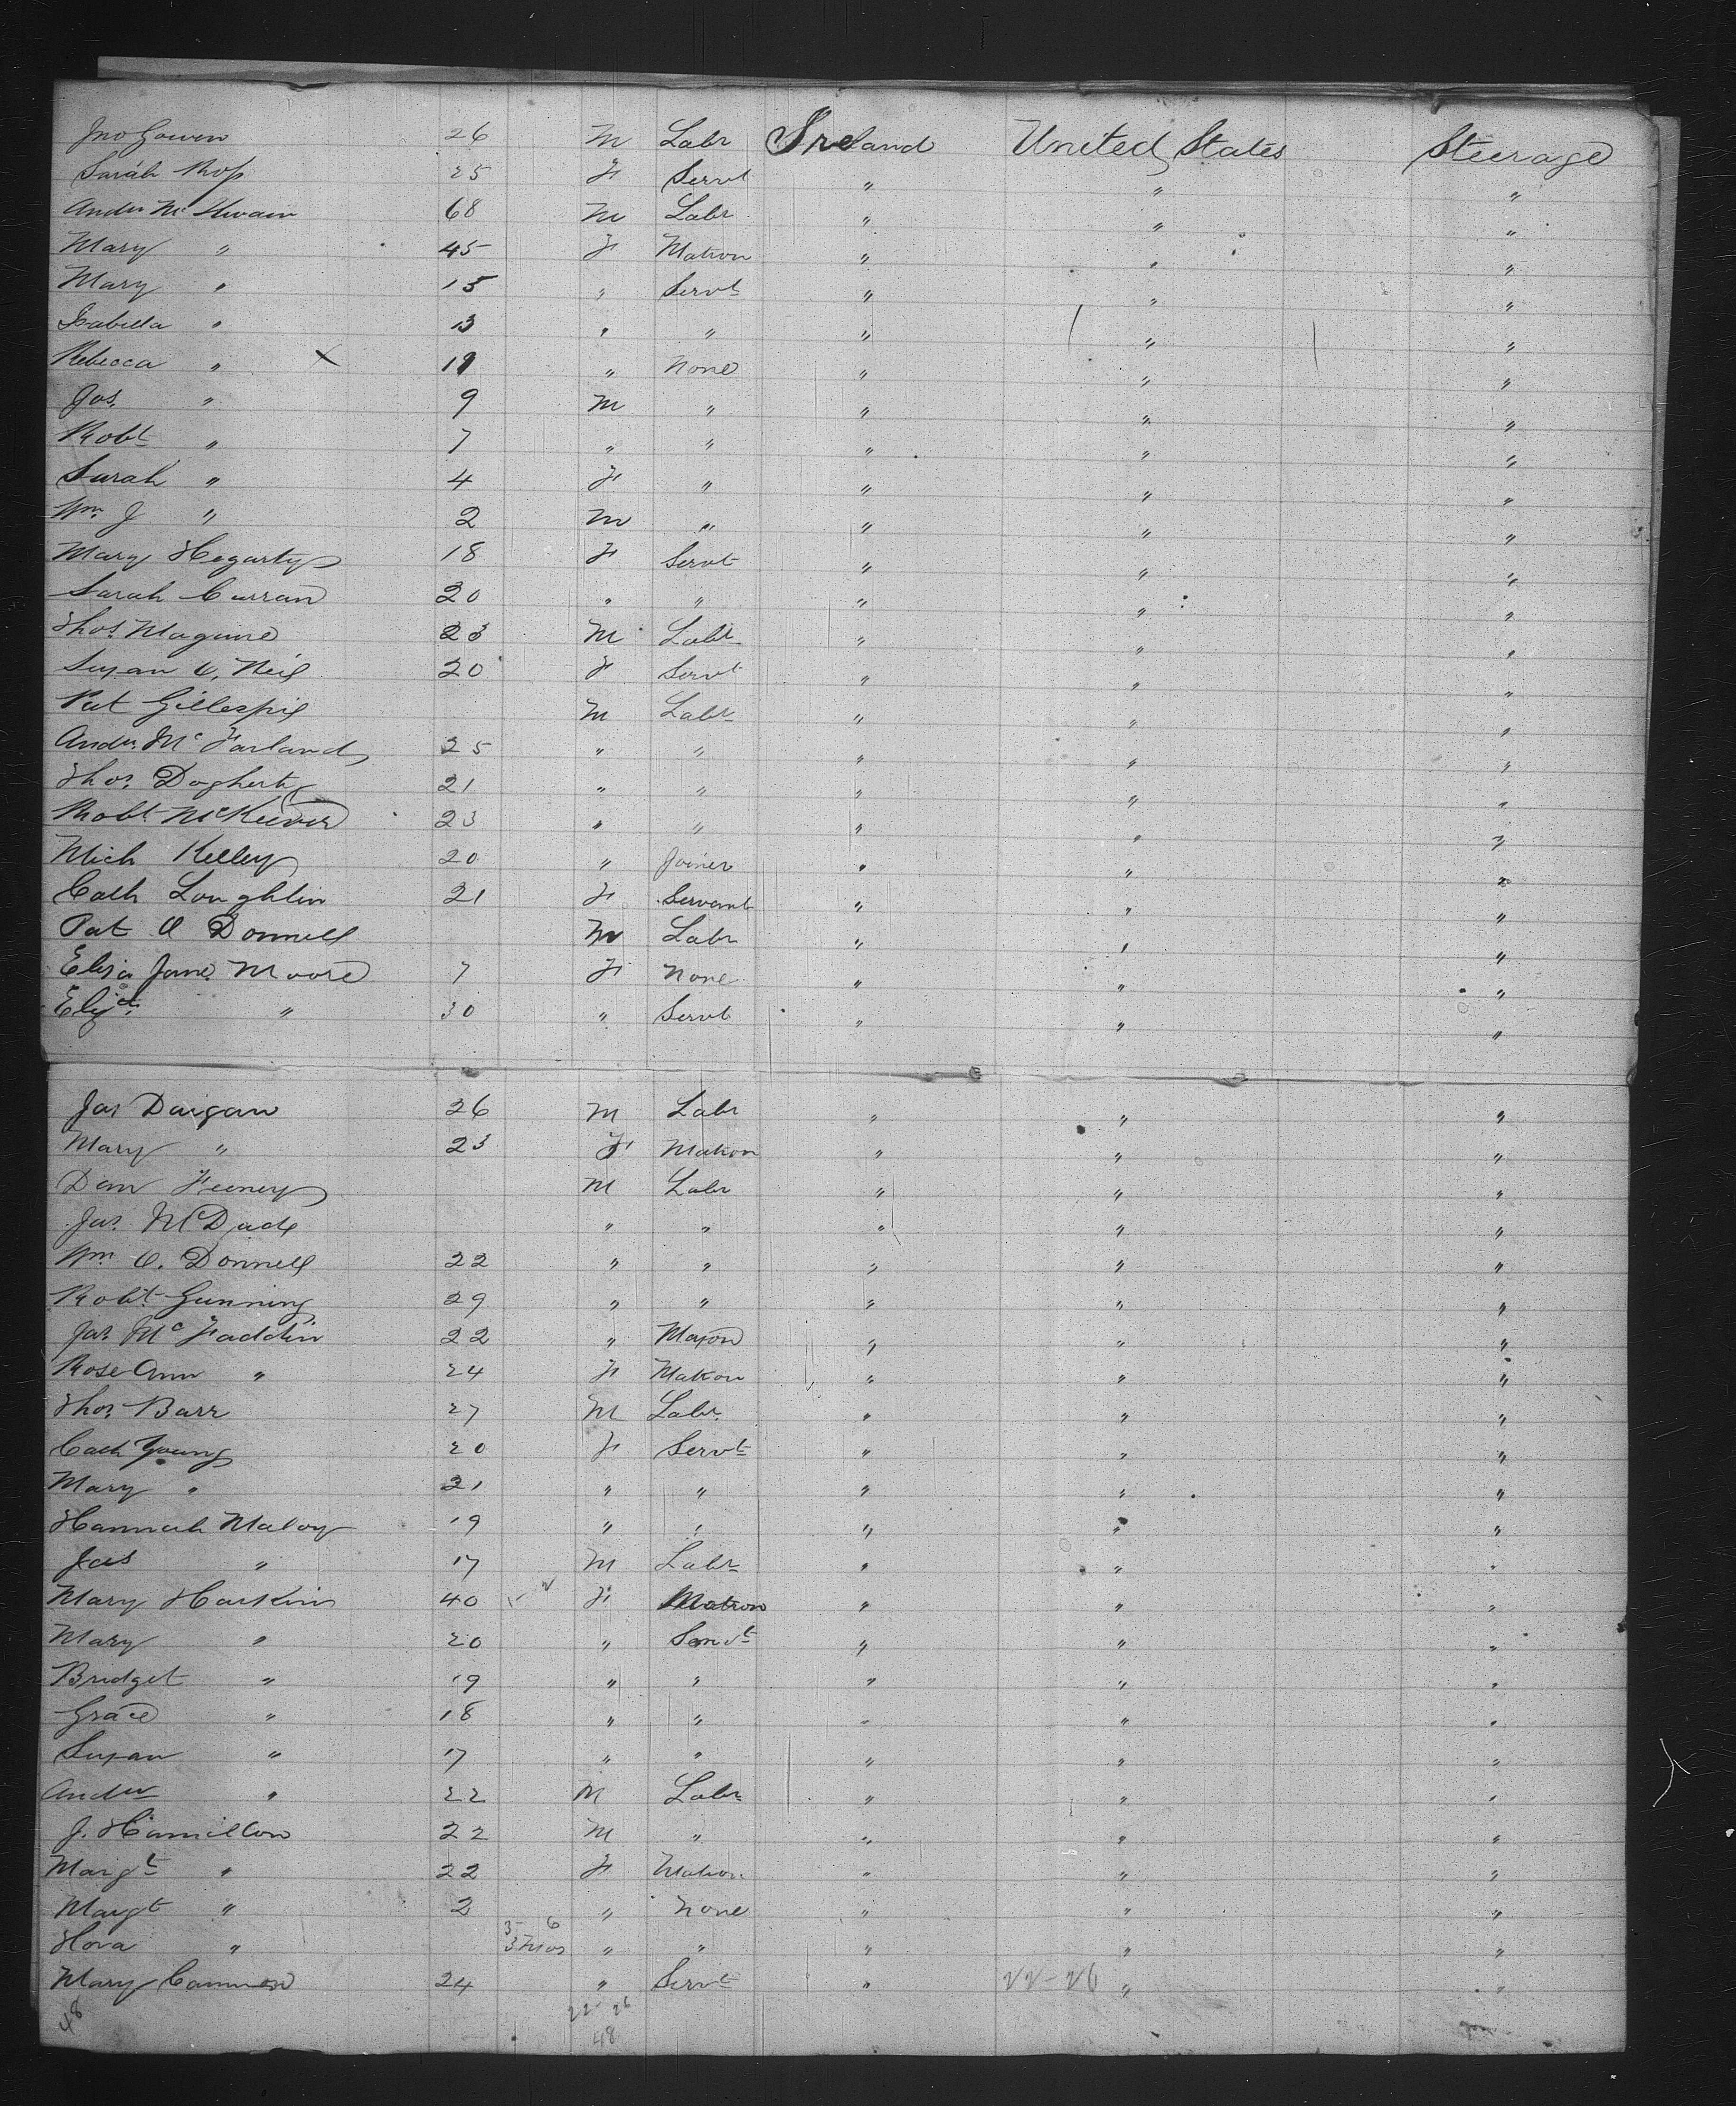 Jno Gowen 26 M Labr Ireland United States Steerage
Sarah Ross 25 F Servt " " "
Andw McIlwain 68 M Labr " " "
Mary " 45 F Matron " " "
Mary " 15 " Servt " " "
Isabella " 13 " " " " "
Rebecca " 11 " None " " "
Jas. " 9 M " " " "
Robt " 7 " " " " "
Sarah " 4 F " " " "
Wm. J " 2 M " " " "
Mary Hegarty 18 F Servt " " "
Sarah Curran 20 " " " " "
Thos. Maguire 23 M Labr " " "
Susan O, Neil 20 F Servt " " "
Pat Gillespie M Labr " " "
Andw. McFarland 25 " " " " "
Thos. Dogherty 21 " " " " "
Robt McKeever 23 " " " " "
Mich Kelley 20 " Joiner " " "
Cath Loughlin 21 F Servant " " "
Pat O Donnell M Labr " " "
Eliza Jane Moore 7 F None " " "
Elizth " 30 " Servt " " "
Jas Daigan 26 M Labr " " "
Mary " 23 F Matron " " "
Dan Feeney M Labr " " "
Jas. McDade " " " " "
Wm O. Donnell 22 " " " " "
Robt Gunning 29 " " " " "
Jas McFaddin 22 " Mason " " "
Rose Ann " 24 F Matron " " "
Thos. Barr 27 M Labr. " " "
Cath Young 20 F Servt " " "
Mary " 21 " " " " "
Hannah Maloy 19 " " " " "
Jas " 17 M Labr " " "
Mary Harkin 40 F Matron " " "
Mary " 20 " Servt " " "
Bridget " 19 " " " " "
Grace " 18 " " " " "
Susan " 17 " " " " "
Andw " 22 M Labr " " "
J. Hamilton 22 M " " " "
Margt " 22 F Matron " " "
Margt " 2 " None " " "
3- 6
" 3 Mos " " " " "
Mary Cannon 24 " Servt " 22-26 " "
48 22-26
48